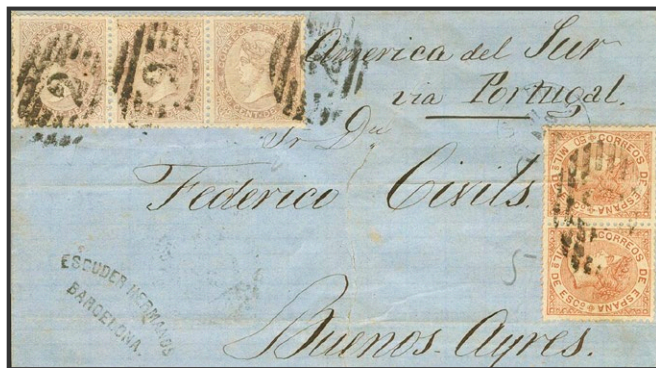 America del Sur
via Portugal.
Sr Dn
Federico Civils.
ESCUDER HERMANOS
BARCELONA.
Buenos-Ayres.
CORREOS DE ESPAÑA
CORREOS DE ESPAÑA
5